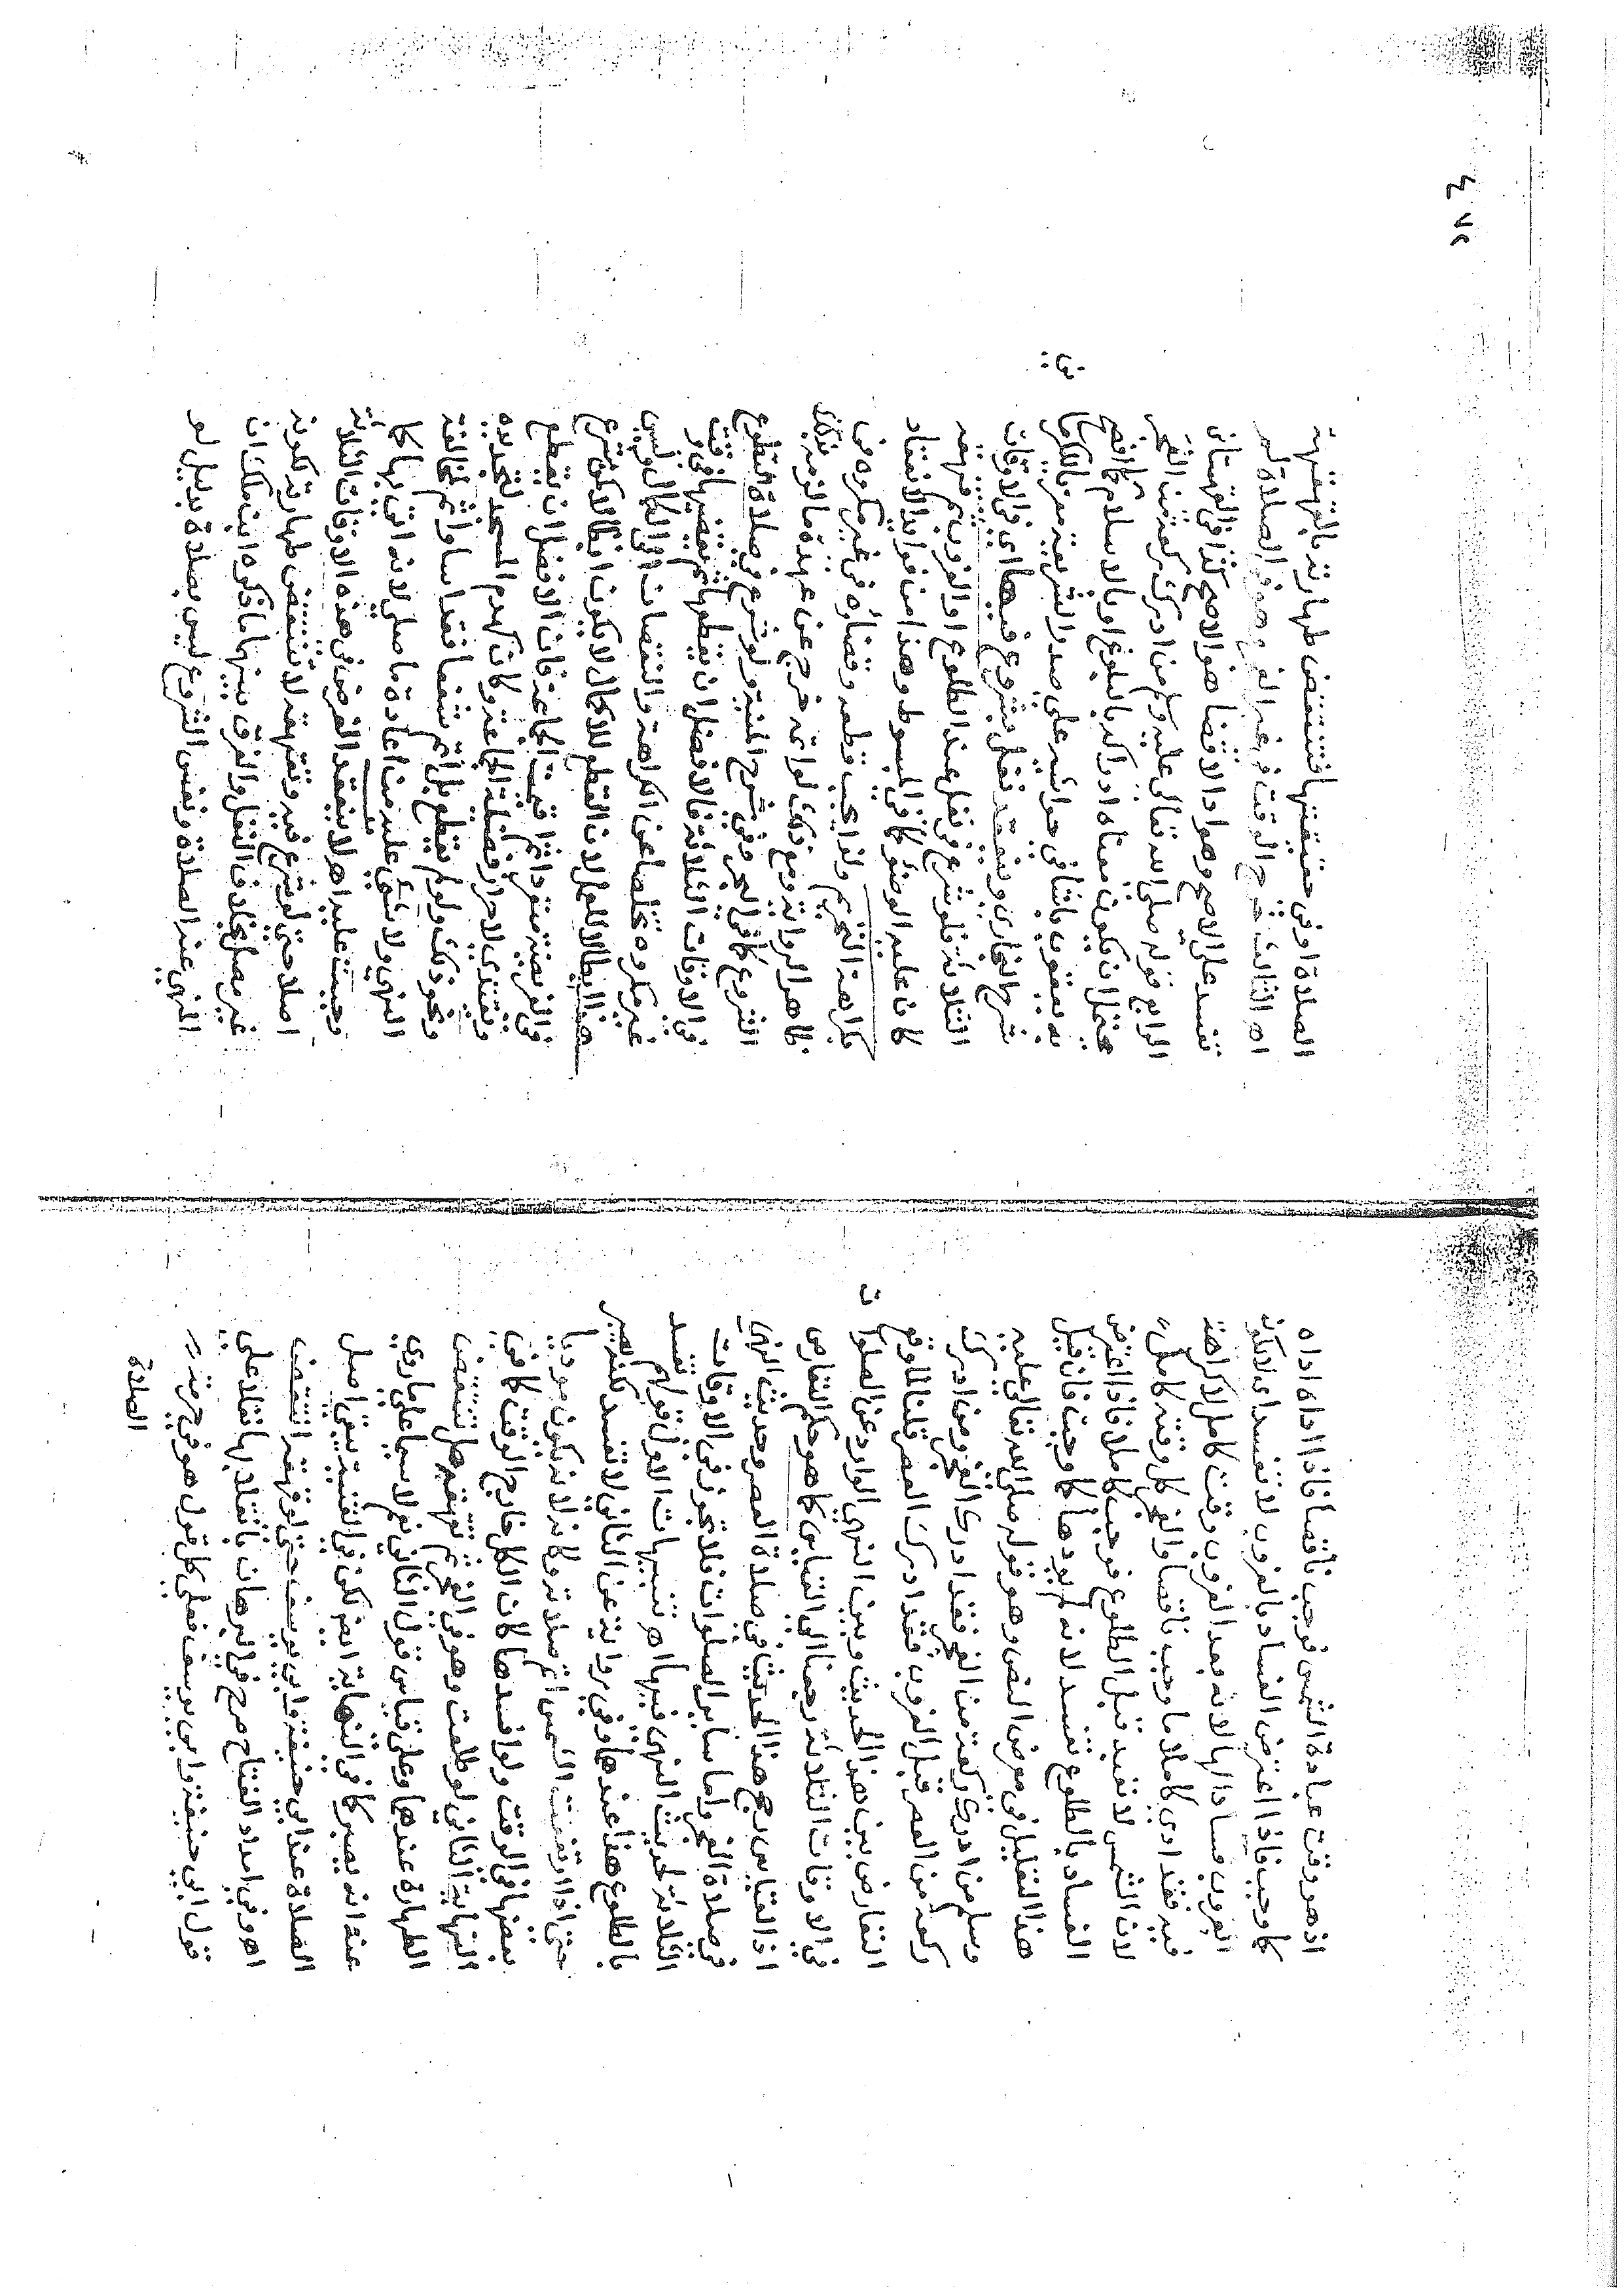 اذ هو وقت عبادة الشمس فوجب ناقصا فاذا اداه اداه
كما وجب فاذا اعترض الفساد بالغروب لا تفسد اي لا يكون
الغروب مفسدا لها لانه بعد الغروب وقت كامل لا كراهة
فيه فقد ادي كاملا ما وجب ناقصا والفجر كل وقته كامل
لان الشمس لا تعبد قبل الطلوع فوجب كاملا فاذا اعترض
الفساد بالطلوع تفسد لانه لم يودها كما وجبت فان قيل
هذا التعليل في معرض النص وهو قوله صلى الله تعالى عليه
وسلم من ادرك ركعة من الفجر فقد ادرك الفجر ومن ادرك
ركعة من العصر قبل الغروب فقد ادرك العصر قلنا لما وقع
التعارض بين هذا الحديث وبين النهي الوارد عن الصلوات
في الاوقات الثلاثة رجعنا الى القياس كما هو حكم التعارض
اذ القياس رجح هذا الحديث في صلاة العصر وحديث النهي
في صلاة الفجر واما ساير الصلوات فلا تجوز في الاوقات
الثلاثة لحديث النهي فيها اه تنبيهات الاول قولهم تفسد
بالطلوع هذا عندهما وفي رواية عن الثاني لا تفسد لكنه يصبر
حتى اذا ارتفعت الشمس اتم صلاته وكانه لان يكون موديا
بعضها في الوقت ولو افسدها كان الكل خارج الوقت كما في
النهاية الثاني لو طلعت وهو في الفجر ثم قهقه هل تنتقض
الطهارة عندهما وعلى قياس قول الثاني نعم لا سيما على ما روي
عنه انه يصبر كما في النهاية لكن في القنية يبقى اصل
الصلاة عند ابي حنيفة وابي يوسف حتى لو قهقه انتقض
اه وفي امداد الفتاح صرح في البرهان بانقلابها نفلا على
قول ابي حنيفة وابي يوسف فعلى كل قول هو في حرمة
الصلاة
الصلاة او في حقيقتها فتنتقض طهارته بالقهقهة
اه الثالث خرج الوقت في غير الفجر وهو في الصلاة لم
تفسد على الاصح وهو اداء لا قضا هو الاصح كذا في القهستاني
الرابع قوله صلى الله تعالى عليه وسلم من ادرك ركعة من الفجر
يحتمل ان يكون معناه ادرك بالبلوغ او بالاسلام كما افصح
به يعقوب باشا في حواشيه على صدر الشريعة معزيا للكرماني
شرح البخاري وينعقد نفل شرع فيها اي في الاوقات
الثلاثة فلو شرع في نفل عند الطلوع او الغروب ثم قهقهه
كان عليه الوضوء كما في المبسوط وهذا من فوايد الانعقاد
بكراهة التحريم ولذا يجب قطعه وقضاؤه في غير مكروه في
ظاهر الرواية ومع ذلك لو اتمه خرج عن عهدة ما لزمه بذلك
الشروع كما في البحر وفي شرح المنية ولو شرع في صلاة التطوع
في الاوقات الثلاثة فالافضل ان يقطعها ثم يقضيها في وقت
غير مكروه تخلصا عن الكراهة والنقصان الى الكمال وليس
هذا ابطالا للعمل لان القطع للاكمال لا يكون ابطالا كمن شرع
في الفريضة منفردا ثم اقيمت الجماعة فان الافضل ان يقطع
ويقتدي لاحراز فضيلة الجماعة وكان كهدم المسجد لتجديده
ونحو ذلك ولو لم يقطع بل اتم شفعا فقد اسا واثم لمخالفة
النهي ولا شيء عليه من اعادة ما صلى لانه اتى بها كما
وجبت عليه اه لا ينعقد الفرض في هذه الاوقات الثلاثة
اصلا حتى لو شرع فيه وقهقه لا تنتقض طهارته لكونه
غير مصل بخلاف النفل والفرق بينهما ما ذكره ابن ملك ان
النهي عن الصلاة ونفس الشروع ليس بصلاة بدليل لو